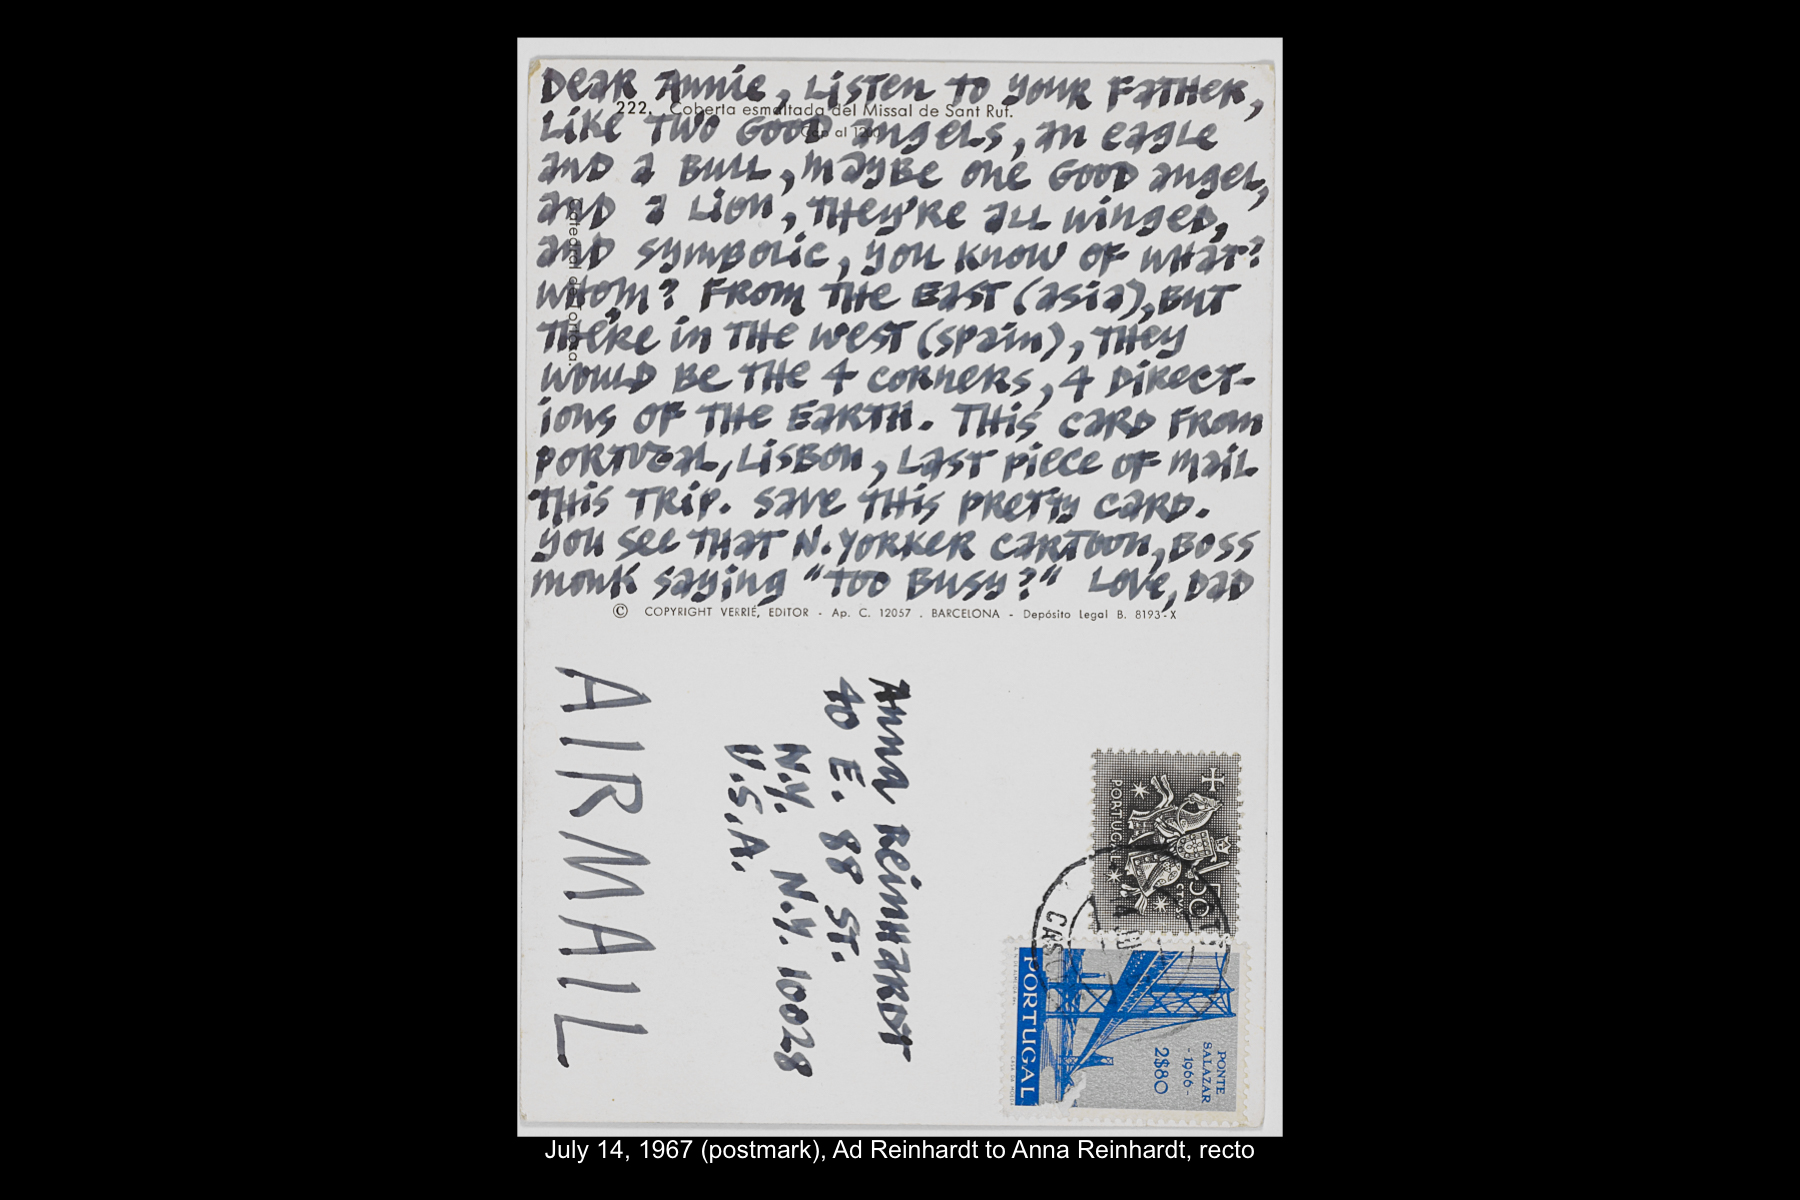 Dear Annie, Listen to your Father,
222. Coberta esmaltada del Missal de Sant Ruf.
Like two good angels, an eagle
Cap al 12
and a bull, maybe one good angel,
and a lion, they're all winged,
and symbolic, you know of what?
whom? From the East (asia), but
there in the west (spain), they
would be the 4 corners, 4 direct-
ions of the Earth. This card from
Portugal, Lisbon, Last piece of mail
this trip. Save this pretty card.
you see that N.Yorker cartoon, Boss
monk saying "too Busy?" Love, Dad
Catedral de Tortosa.
© COPYRIGHT VERRIÉ, EDITOR - Ap. C. 12057 . BARCELONA - Depósito Legal B. 8193-X
Anna Reinhardt
40 E. 88 St.
N.Y. N.Y. 10028
U.S.A.
AIRMAIL
PORTUGAL
50
CTVS
PONTE
SALAZAR
-1966-
2$80
PORTUGAL
July 14, 1967 (postmark), Ad Reinhardt to Anna Reinhardt, recto